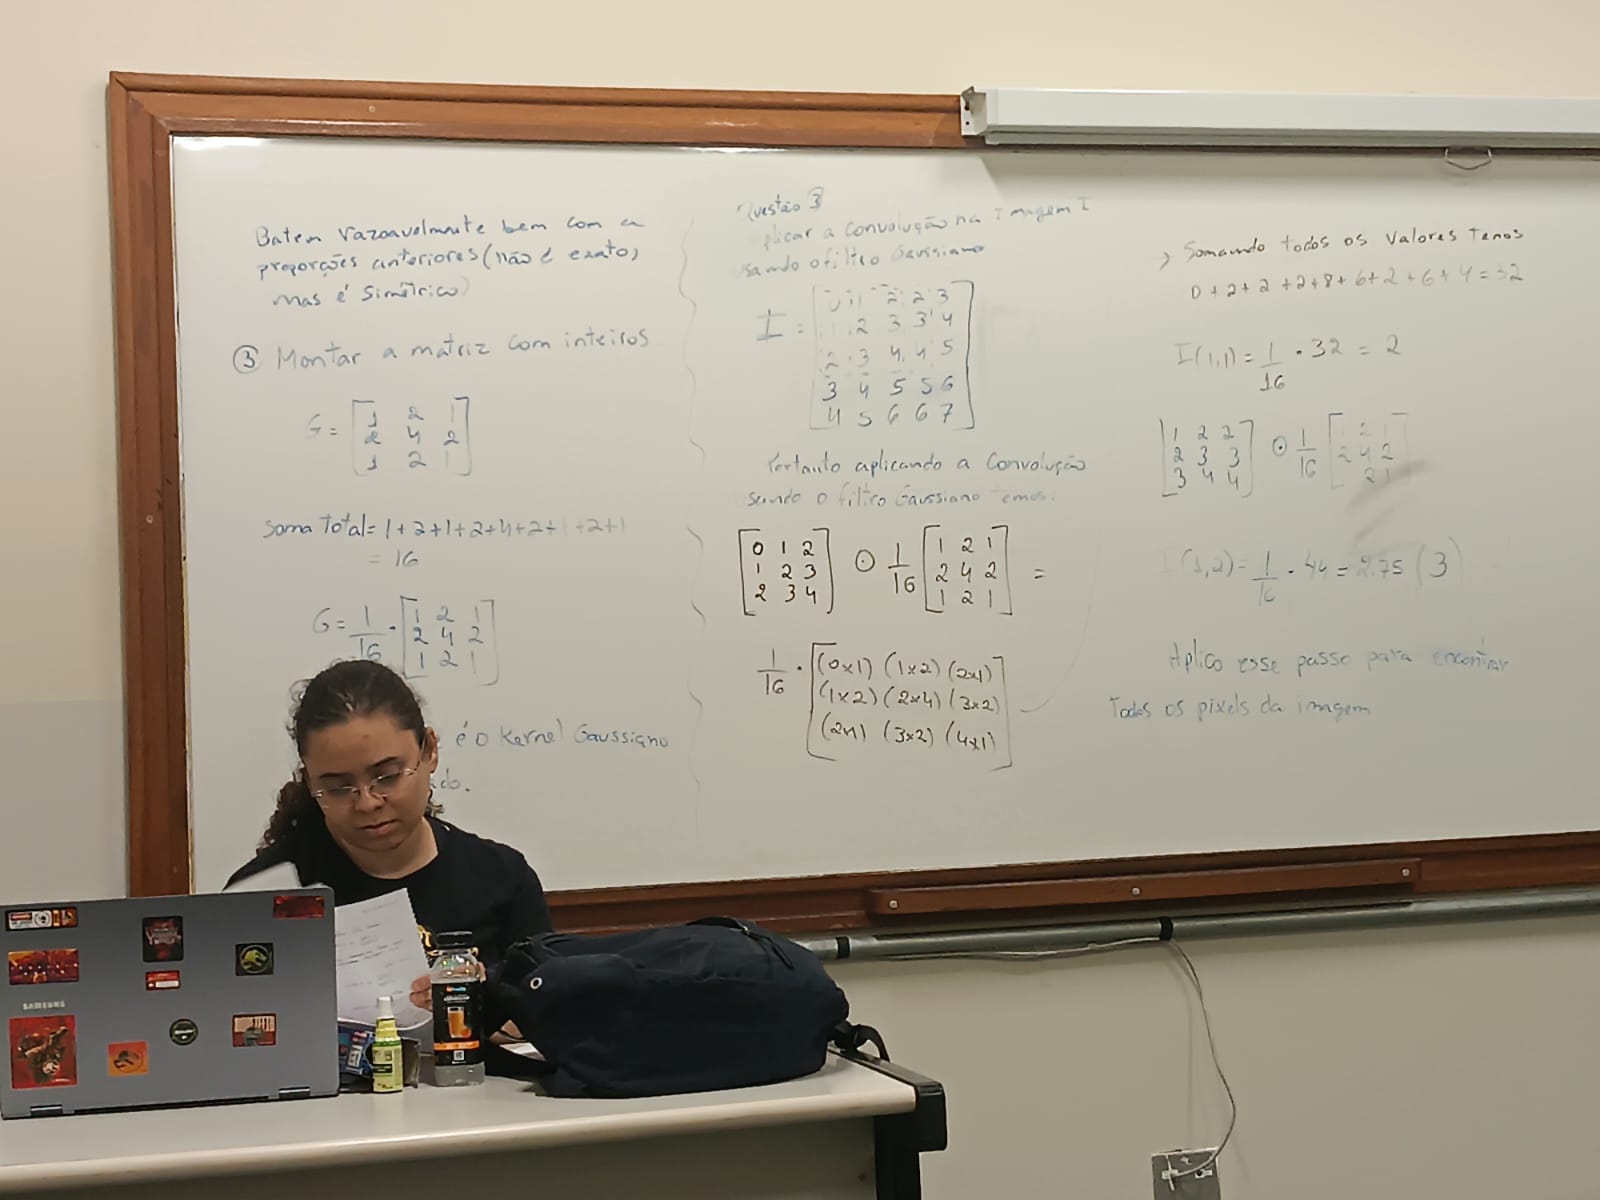 Batem razoavelmente bem com a
proporções anteriores (não é exato,
mas é simétrico)
③ Montar a matriz com inteiros
G = [1 2 1
2 4 2
1 2 1]
Soma Total = 1+2+1+2+4+2+1+2+1
= 16
G = 1/16 · [1 2 1
2 4 2
1 2 1]
é o Kernel Gaussiano
Questão 3
plicar a convolução na Imagem I
usando o filtro Gaussiano
I = [0 1 2 2 3
1 2 3 3 4
2 3 4 4 5
3 4 5 5 6
4 5 6 6 7]
Portanto aplicando a Convolução
usando o filtro Gaussiano temos:
[0 1 2
1 2 3
2 3 4] ⊙ 1/16 [1 2 1
2 4 2
1 2 1] =
1/16 · [(0x1) (1x2) (2x1)
(1x2) (2x4) (3x2)
(2x1) (3x2) (4x1)]
Somando todos os valores temos
0+2+2+2+8+6+2+6+4=32
I(1,1) = 1/16 · 32 = 2
[1 2 2
2 3 3
3 4 4] ⊙ 1/16 [1 2 1
2 4 2
2 1]
I(1,2) = 1/16 · 44 = 2.75 (3)
Aplico esse passo para encontrar
Todos os pixels da imagem
SAMSUNG